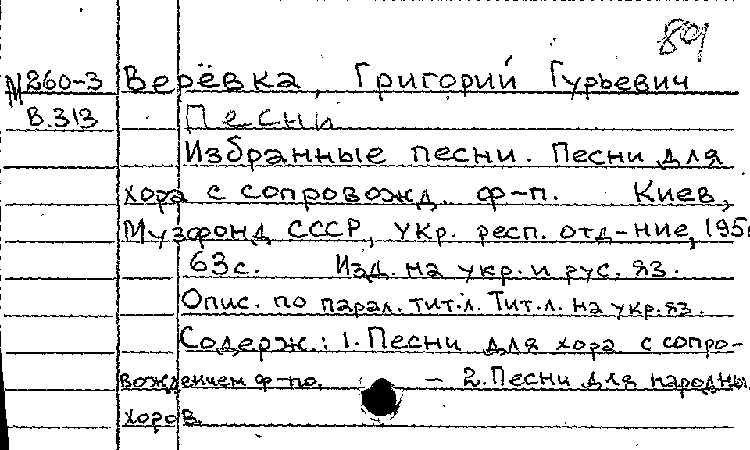 801
М260-3 Верёвка, Григорий Гурьевич
В.313 Песни
Избранные песни. Песни для
хора с сопровожд. ф-п. Киев,
Музфонд СССР, укр. респ. отд-ние, 195
63с. Изд. на укр. и рус. яз.
Опис. по парал. тит.л. Тит.л. на укр. яз.
Содерж.: 1. Песни для хора с сопро-
вождением ф-по. — 2. Песни для народны
хоров.